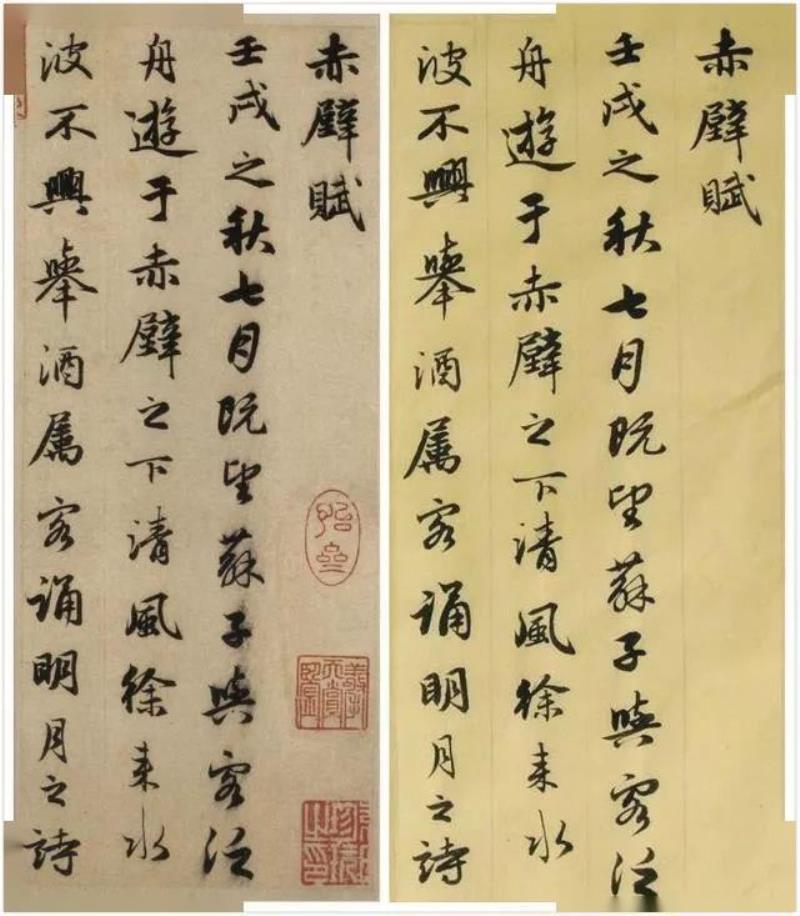 赤壁賦
壬戌之秋七月既望蘇子與客泛
舟遊于赤壁之下清風徐来水
波不興舉酒属客誦明月之詩
赤壁賦
壬戌之秋七月既望蘇子與客泛
舟遊于赤壁之下清風徐来水
波不興舉酒属客誦明月之詩